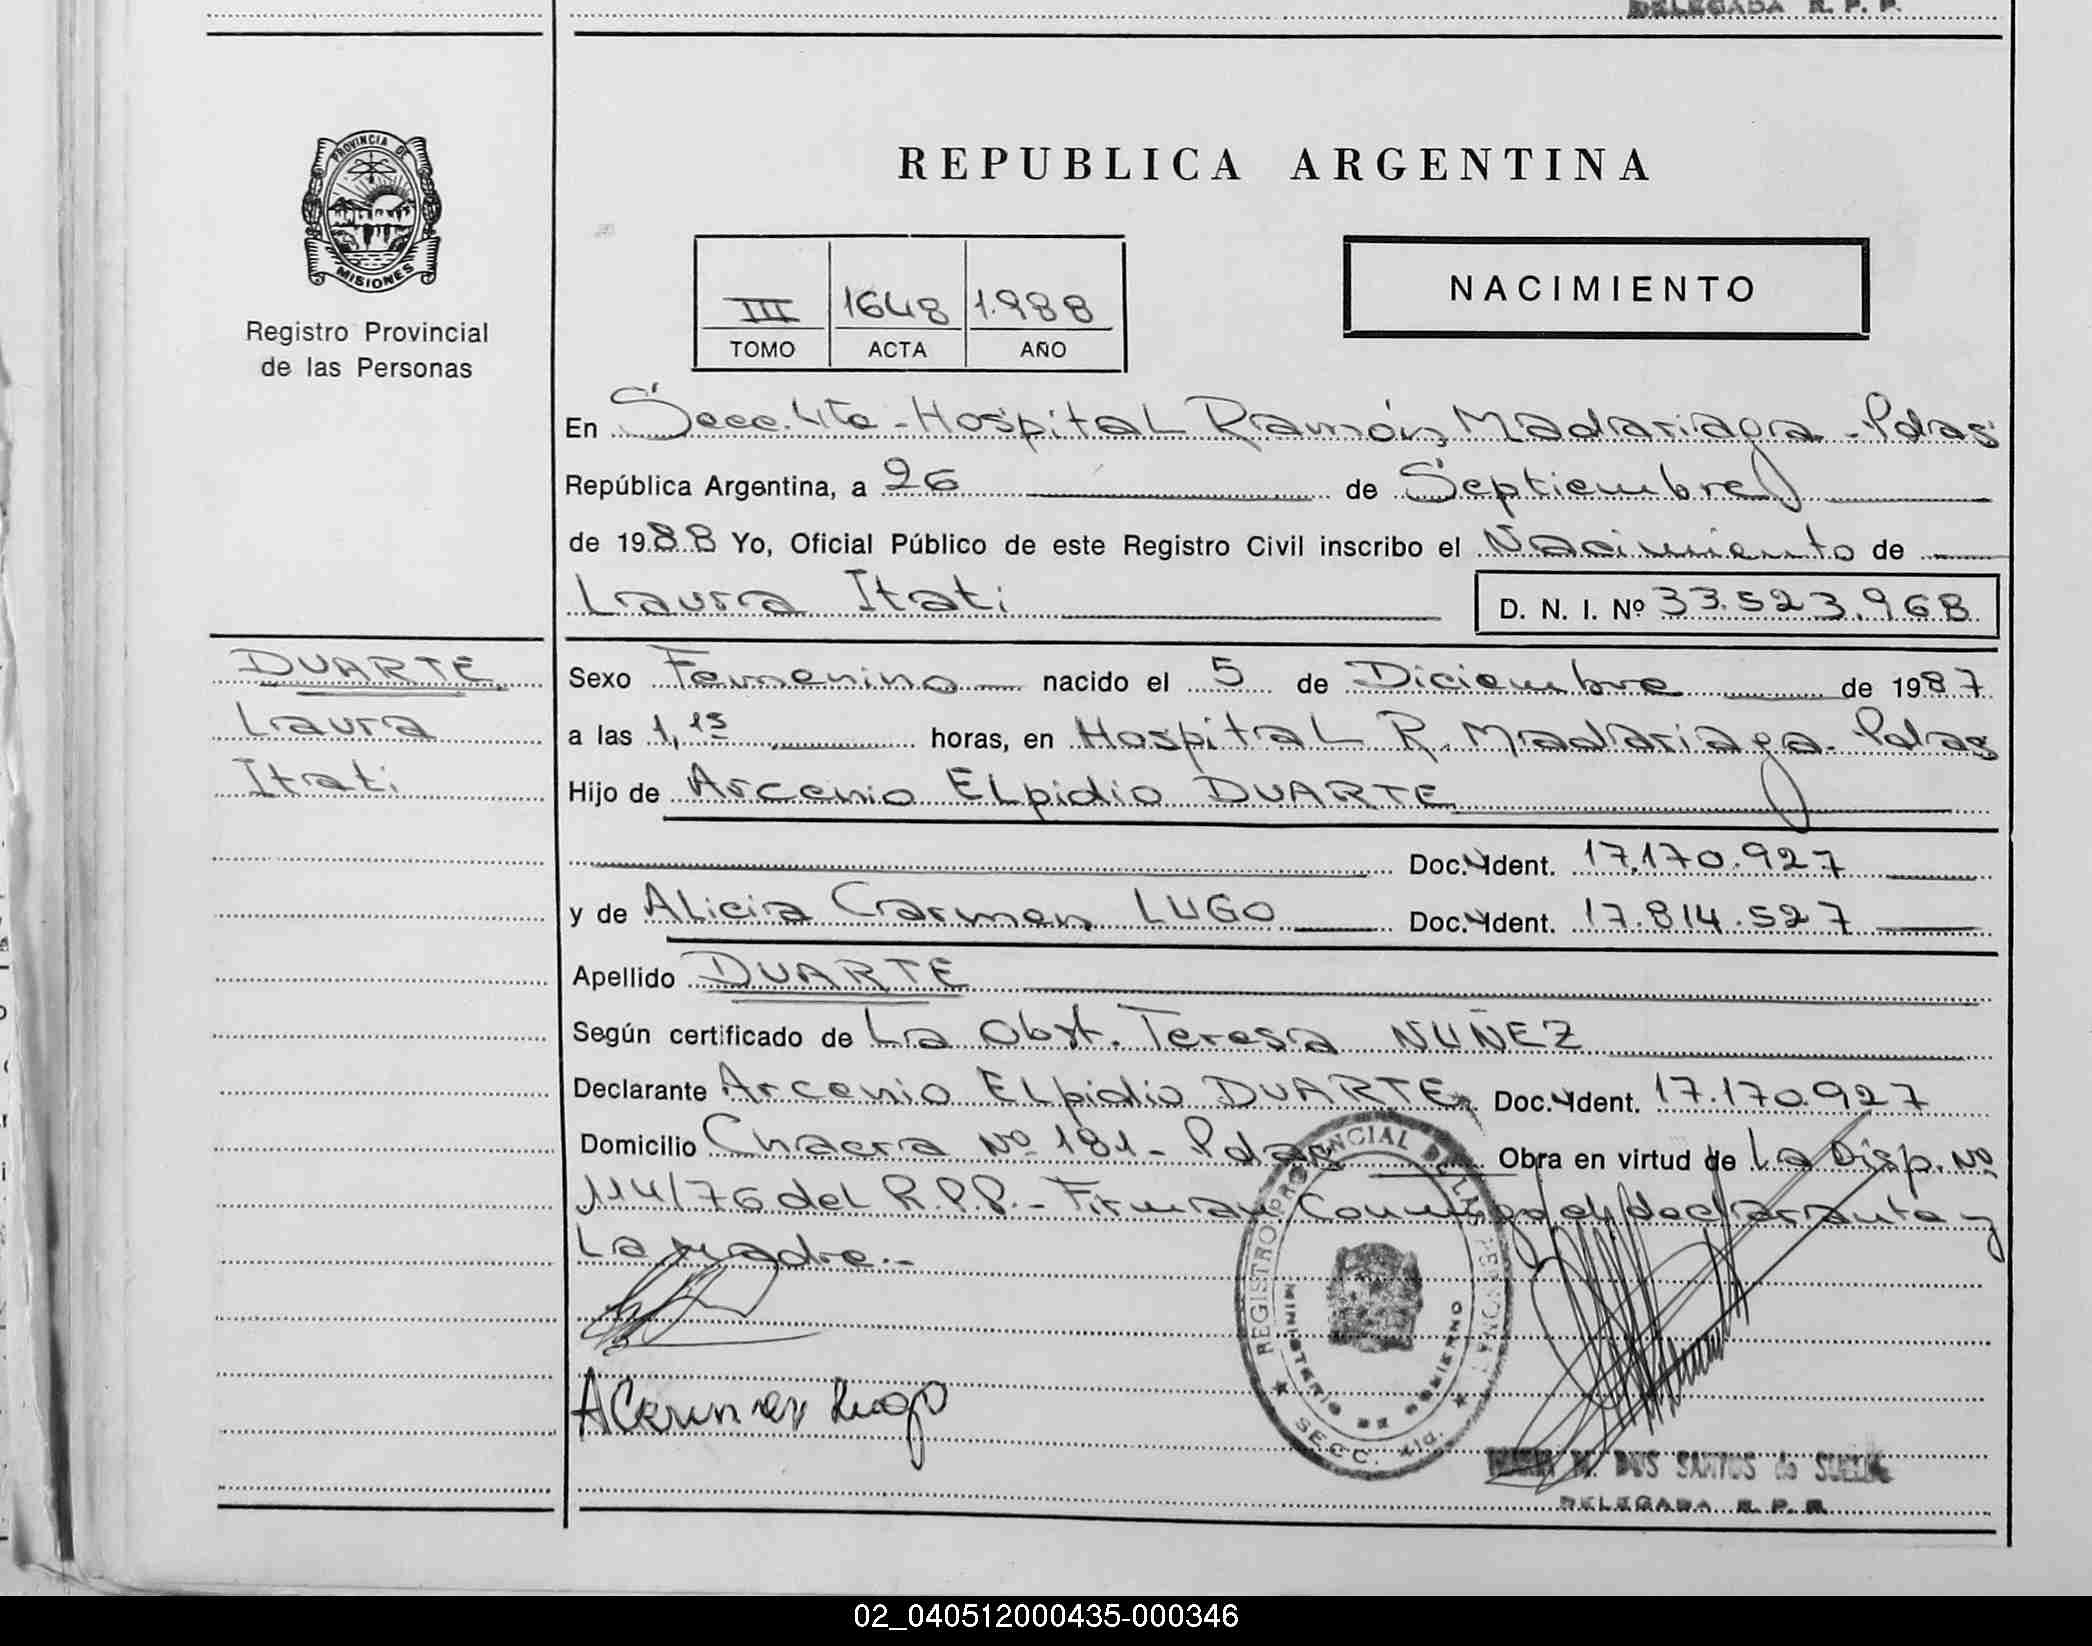 DELEGADA R. P. P.
PROVINCIA DE
MISIONES
Registro Provincial
de las Personas
REPUBLICA ARGENTINA
III 1648 1.988
TOMO ACTA AÑO
NACIMIENTO
En Secc. 4ta - Hospital Ramón Madariaga - Pdas
República Argentina, a 26 de Septiembre
de 1988 Yo, Oficial Público de este Registro Civil inscribo el Nacimiento de
Laura Itati
D. N. I. Nº 33.523.968
DUARTE
Laura
Itati
Sexo Femenino nacido el 5 de Diciembre de 1987
a las 1,15 horas, en Hospital R. Madariaga - Pdas
Hijo de Arcenio ELpidio DUARTE
Doc. Ident. 17.170.927
y de ALicia Carmen LUGO Doc. Ident. 17.814.527
Apellido DUARTE
Según certificado de La Obst. Teresa NUÑEZ
Declarante Arcenio ELpidio DUARTE Doc. Ident. 17.170.927
Domicilio Chacra Nº 181 - Pdas Obra en virtud de La Disp. Nº
114/76 del R.P.P. - Firman Conmigo el declarante y
La Madre.-
REGISTRO PROVINCIAL DE LAS PERSONAS
MINISTERIO DE GOBIERNO
SECC. 4ta.
A Carmen Lugo
M. DOS SANTOS de
DELEGADA R. P. P.
02_040512000435-000346